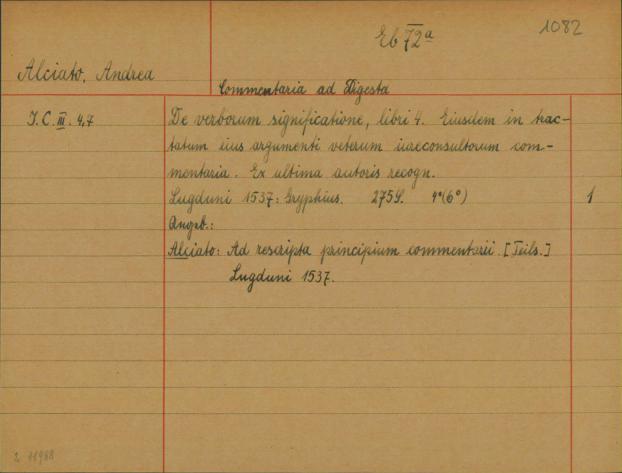 Eb 72a 1082
Alciato, Andrea
Commentaria ad Digesta
J.C. III. 4,7
De verborum significatione, libri 4. Eiusdem in trac-
tatum eius argumenti veterum iureconsultorum com-
mentaria. Ex ultima autoris recogn.
Lugduni 1537: Gryphius. 275S. 4°(6°) 1
Angeb.:
Alciato: Ad rescripta principium commentarii. [Teils.]
Lugduni 1537.